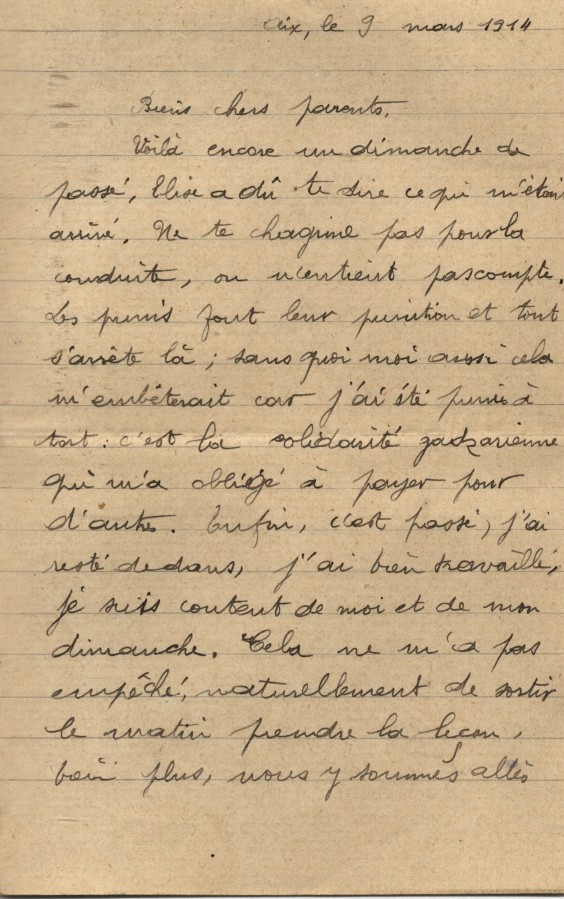 Aix, le 9 mars 1914
Biens chers parents.
Voilà encore un dimanche de
passé, Elise a dû te dire ce qui m'était
arrivé. Ne te chagrine pas pour la
conduite, on n'en tient pas compte.
Les punis font leur punition et tout
s'arrête là ; sans quoi moi aussi cela
m'embêterait car j'ai été puni à
tort : c'est la solidarité gadzarienne
qui m'a obligé à payer pour
d'autres. Enfin, c'est passé, j'ai
resté dedans, j'ai bien travaillé,
je suis content de moi et de mon
dimanche. Cela ne m'a pas
empêché, naturellement de sortir
le matin prendre la leçon,
bien plus, nous y sommes allés